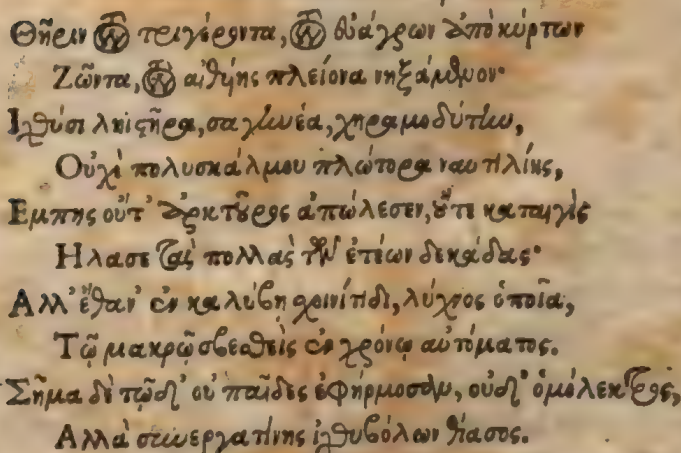 Θῆριν τὸν τριγέροντα, τὸν εὐάγρων ἀπὸ κύρτων
Ζῶντα, τὸν αἰθυίης πλείονα νηξάμενον·
Ἰχθύσι ληιστῆρα, σαγηνέα, χηραμοδύτην,
Οὐχὶ πολυσκάλμου πλώτορα ναυτιλίης,
Εμπης οὔτ' ἀρκτοῦρος ἀπώλεσεν, οὔτε καταιγὶς
Ηλασε τὰς πολλὰς τῶν ἐτέων δεκάδας·
Αλλ' ἔθαν' ἐν καλύβῃ σχοινίτιδι, λύχνος ὁποῖα,
Τῷ μακρῷ σβεσθεὶς ἐν χρόνῳ αὐτόματος.
Σῆμα δὲ τῷδ' οὐ παῖδες ἐφήρμοσαν, οὐδ' ὁμόλεκτρος,
Αλλὰ συνεργατίνης ἰχθυβόλων θίασος.